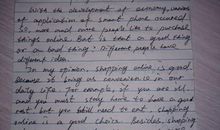 With the development of economy, various
of application of smart phone occured
so, more and more people like to purchase
things online. But is that a good thing
or a bad thing? Different people have
different idea.
In my opinion, shopping online is good
because it brings us convenience in our
daily life. For example, if you are ill.
and you must stay home to have a good
rest. but you still need to eat. Shopping
online is a good choice. Besides, shopping